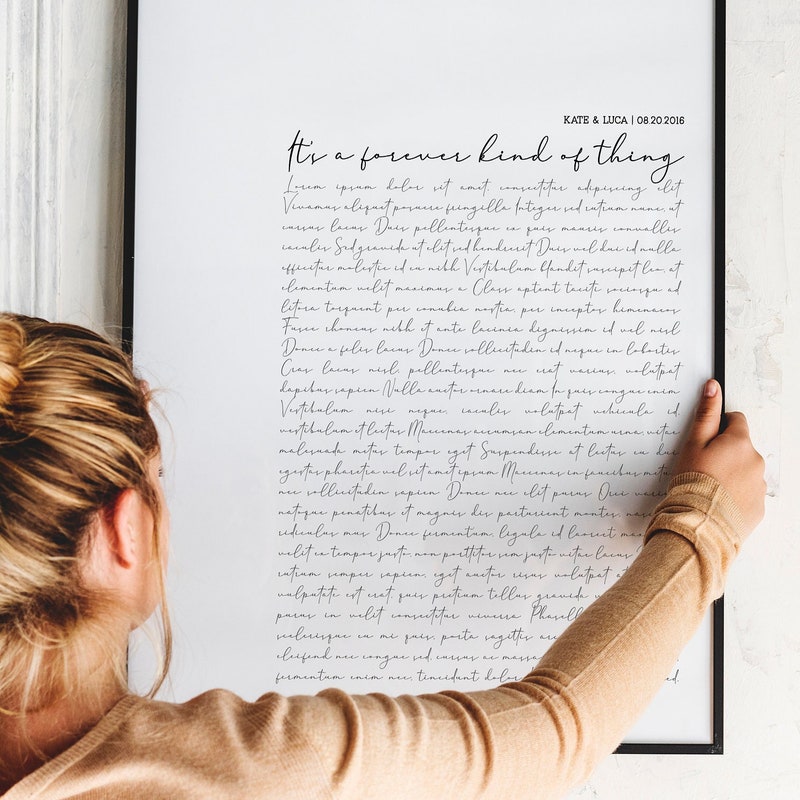 KATE & LUCA | 08.20.2016
It's a forever kind of thing
Lorem ipsum dolor sit amet, consectetur adipiscing elit
Vivamus aliquet posuere fringilla Integer sed rutrum nunc, ut
cursus lacus Duis pellentesque ex quis mauris convallis
iaculis Sed gravida ut elit sed hendrerit Duis vel dui id nulla
efficitur molestie id eu nibh Vestibulum blandit suscipit leo, at
elementum velit maximus a Class aptent taciti sociosqu ad
litora torquent per conubia nostra, per inceptos himenaeos
Fusce rhoncus nibh et ante lacinia dignissim id vel nisl
Donec a felis lacus Donec sollicitudin id neque in lobortis
Cras lacus nisl, pellentesque nec erat varius, volutpat
dapibus sapien Nulla auctor ornare diam In quis congue enim
Vestibulum nisi neque, iaculis volutpat vehicula id,
vestibulum et lectus Maecenas accumsan elementum urna, vitae
malesuada metus tempor eget Suspendisse at lectus eu dui
egestas pharetra vel sit amet ipsum Maecenas in faucibus metus
nec sollicitudin sapien Donec nec elit purus Orci
natoque penatibus et magnis dis parturient montes,
ridiculus mus Donec fermentum, ligula id laoreet
velit ex tempor justo, non porttitor sem justo vitae lacus
rutrum semper sapien, eget auctor risus volutpat
vulputate est erat, quis pretium tellus gravida
purus in velit consectetur viverra
scelerisque eu mi quis, porta sagittis
eleifend nec congue sed, cursus ac massa
fermentum enim nec, tincidunt dolor sed.